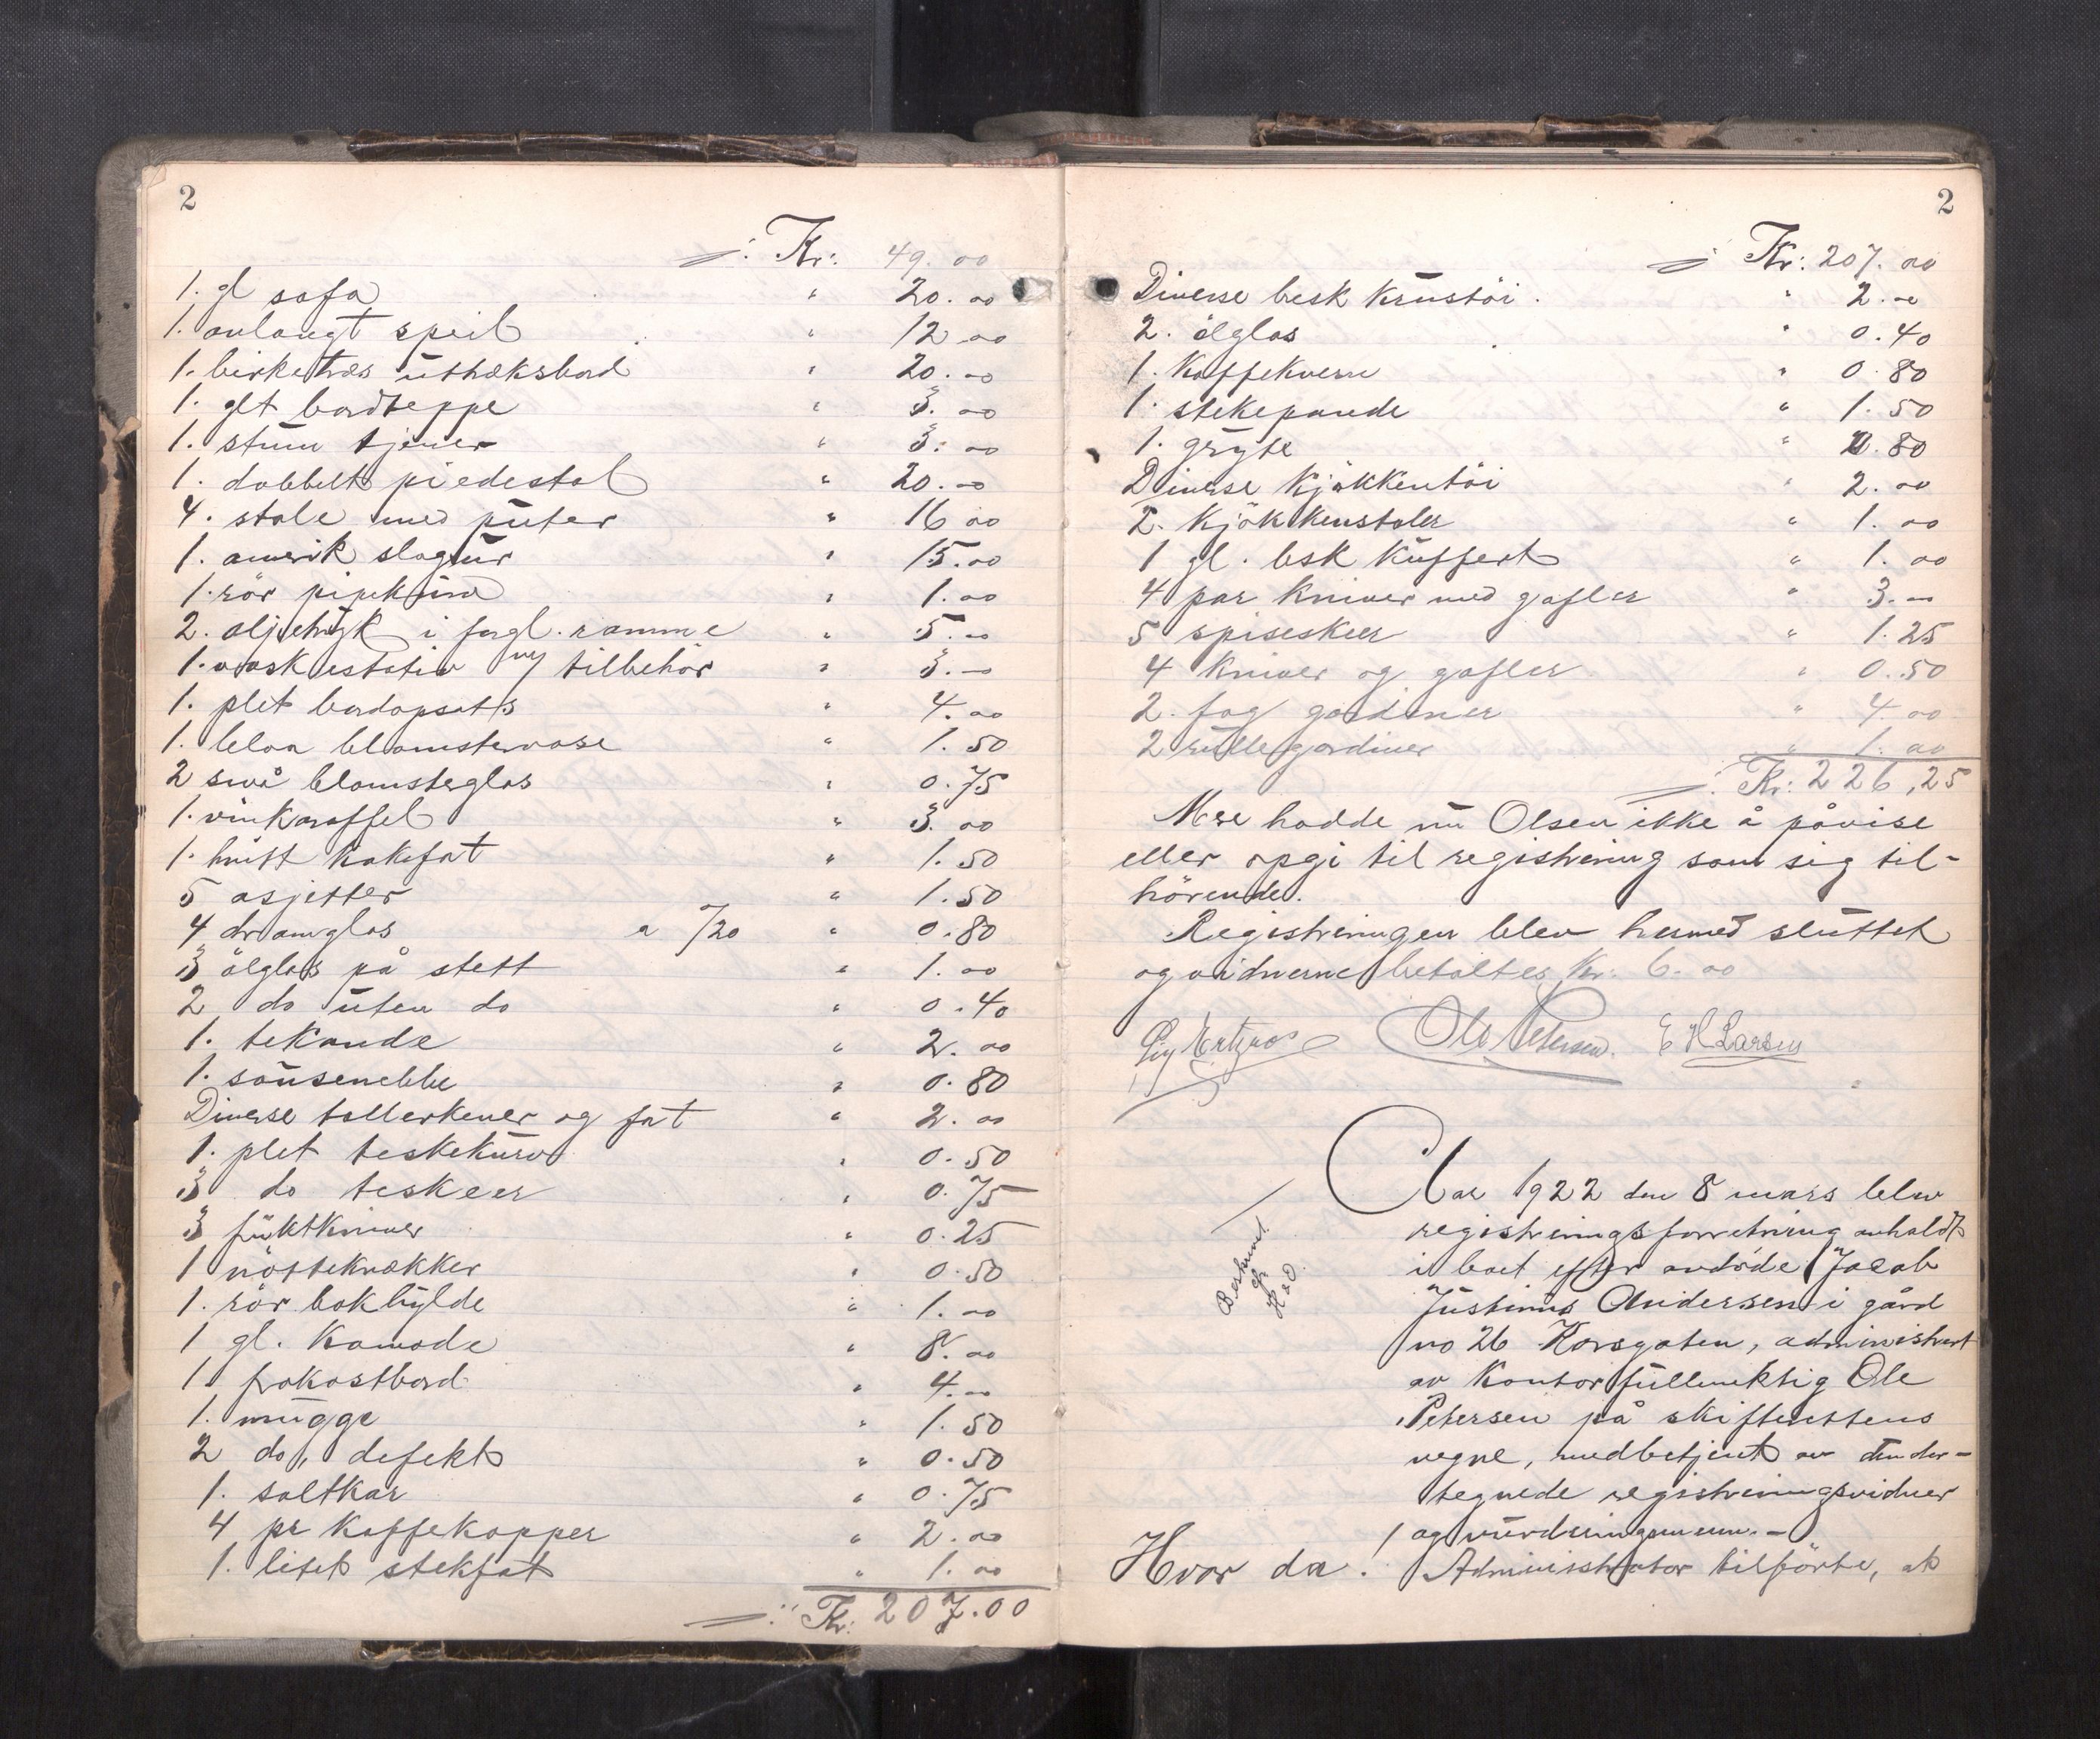 2
Kr: 49.00
1. gl sofa " 20.00
1. avlangt speil " 12.00
1. birketræs uttræksbord " 20.00
1. glt bordteppe " 3.00
1. stum tjener " 3.00
1. dobbelt piedestal " 20.00
4. stole med puter " 16.00
1. amerik slagur " 15.00
1. rör " 1.00
2. oljetryk i forgl. ramme " 5.00
1. vaskestativ m/ tilbehör " 3.00
1. plet bordopsats " 4.00
1. blaa blomstervase " 1.50
2 små blomsterglas " 0.75
1. vinkaraffel " 3.00
1. hvitt kakefat " 1.50
5 asjetter " 1.50
4 dramglas a /20 " 0.80
3 ölglas på stett " 1.00
2 do uten do " 0.40
1. tekande " 2.00
1. sausenebbe " 0.80
Diverse tallerkener og fat " 2.00
1. plet teskekurv " 0.50
3 do teskeer " 0.75
3 fruktkniver " 0.25
1 nöttekrækker " 0.50
1. rör bokhylde " 1.00
1 gl. Komode " 8.00
1 frokostbord " 4.00
1. mugge " 1.50
2 do, defekt " 0.50
1. saltkar " 0.75
4 pr kaffekopper " 2.00
1. litet stekfat " 1.00
Kr: 207.00
2
Kr: 207.00
Diverse besk Krustöi. " 2.00
2. ölglas " 0.40
1. Kaffekvern " 0.80
1. stekepande " 1.50
1. gryte " 0.80
Diverse Kjökkentöi " 2.00
2. Kjökkenstoler " 1.00
1 gl. besk Kuffert " 1.00
4 par kniver med gafler " 3.00
5 spiseskeer " 1.25
4 kniver og gafler " 0.50
2. fag gardiner " 4.00
2 rullegardiner " 1.00
Kr: 226,25
Mere hadde nu Olsen ikke å påvise
eller opgi til registrering som sig til-
hörende.
Registreringen blev hermed sluttet
og vidnerne betaltes Kr: 6.00
Ole Petersen. E H Larsen
Aar 1922 den 8 mars blev
registreringsforretning avholdt
i boet efter avdöde Jacob
Justinus Andersen i gård
no 26 Korsgaten, administrert
av Kontorfullmektig Ole
Petersen på skifterettens
vegne, medbetjent av under-
tegnede registreringsvidner
og vurderingsmenn.-
Hvor da! Administrator tilförte, at